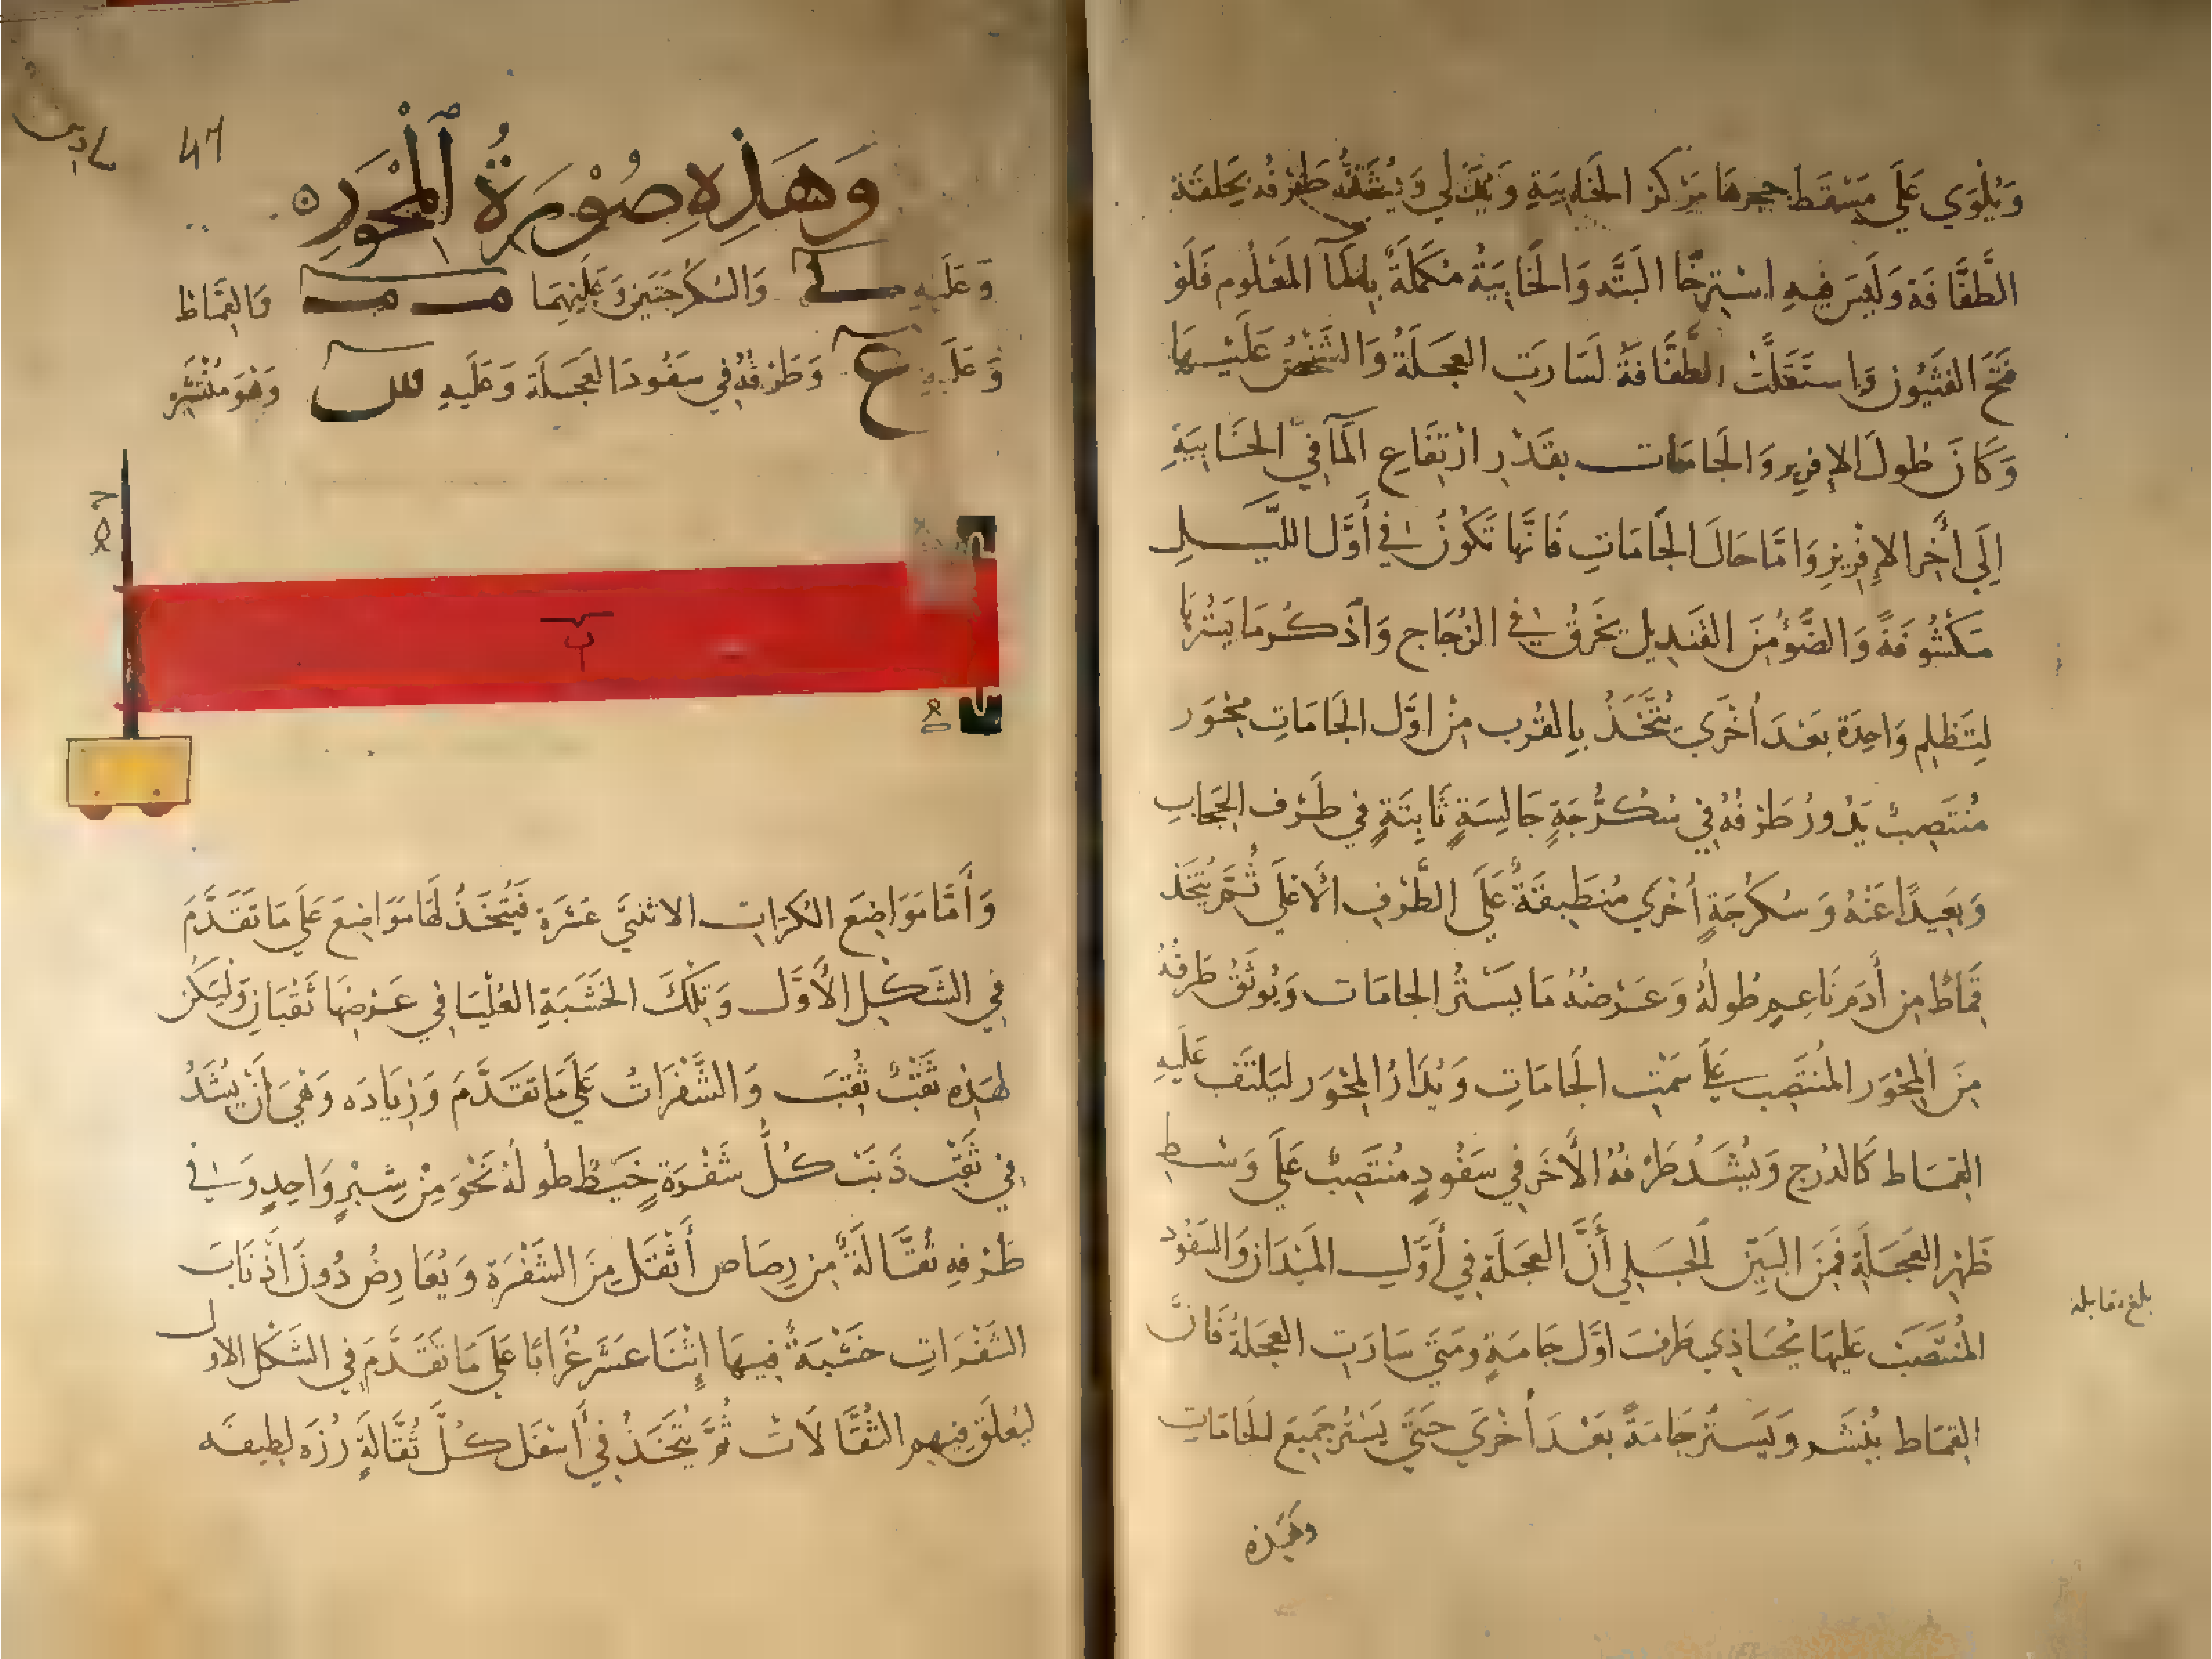 وَيُلْوَي عَلَي مَسْقَط حجرهَا مَركز الخَابِيَةِ وَيُدَلي وَيُشَدُّ طَرَفُه بحَلقَة
الطَّفَّافَة وَلَيسَ فِيهِ اسْتِرخَا البَتَّه وَالخَابِيَةُ مكمَلَةٌ بالمَآ المَعْلُوم فَلَو
فتحَ الفَثيُون وَاستَقَلَّتْ الطفَّافَةُ لَسَارَتِ العجَلَةُ وَالشَّخْصُ عَلَيْهَا
وَكَانَ طُول الإفرِيز وَالجَامَات بقَدْرِ ارْتِفَاعِ المَآ فِي الخَابِيَةِ
إلَي أخِر الإفْرِيزِ وَامَّا حَالَ الجَامَاتِ فَانَّهَا تَكُونُ فِي أَوَّل الليَلِ
مَكشُوفَةً وَالضَّوْ مِنَ القَنْدِيل يَخرقُ فِي الزُجَاج وَاَذكُر مَا يَسْتُرهَا
لِتَظلِم وَاحِدَة بَعْدَ اُخْرَي يُتَّخَذُ بِالقُرب مِنْ اوَّل الجَامَاتِ مِحْوَر
مُنْتَصِبٌ يَدُورُ طَرَفُهُ فِي سُكُرُّجَةٍ جَالِسَةٍ ثَابِتَةٍ فِي طَرَف الحِجَابِ
وَبَعِيدًا عَنْهُ وَسُكرُجَةٍ اُخْرَي مُنطَبِقَةٌ عَلَي الطَّرَفِ الأَعْلَي ثُمَّ يُتَّخَذ
قِمَاطٌ مِن أَدَمٍ نَاعِمٍ طُولهُ وَعَرْضهُ مَا يَسْتُر الجامَات وَيُوثَقُ طَرَفُهُ
مِنَ المِحْوَر المُنتَصِب عَلَي سَمْتِ الجَامَاتِ وَيُدَارُ المِحْوَر ليَلتَفّ عَلَيهِ
القِمَاط كَالدُرج وَيُشَدُ طَرَفُه الأَخَر فِي سَفُودٍ مُنْتَصِبٌ عَلَي وَسْطِ
ظَهْرِ العَجَلَةِ فَمِنَ البَيِّن الجَلِي أَنَّ العجَلَة فِي أَوَّلِ المَيْدَان وَالسَفُود
المُنْتَصِبَ عَلَيهَا يُحَاذِي طَرفَ اوَّل جَامَةٍ ومَتَي سَارَتِ العجَلَةُ فَانَّ
القِمَاط يُنشَر وَيَسْتُر جَامَةً بَعْدَ أُخْرَي حَتَّي يَسْتُر جَمِيعَ الجَامَاتِ
وَهَذِه
بلغ مقابلة
وَهَذِهِ صُوْرَةُ ٱلْمِحْوَرِ
وَعَلَيهِ وَالسُكرُجَتَين وَعَلَيْهِمَا وَالقِمَاط
وَعَلَيهِ ع وَطَرَفُهُ فِي سَفُود العَجَلَة وَعَلَيهِ وَهُوَ مُنْتَشِر
وَأَمَّا مَوَاضِعَ الكُرَاتِ الاثنَيَّ عَشَرَة فَيُتَّخَذُ لهَا مَوَاضِعَ عَلَي مَا تَقَدَّمَ
فِي الشَكْلِ الأَوَّل وَتِلْكَ الخَشَبَةِ العُلْيَا فِي عَرْضِهَا ثَقْبَان وَليَكُن
لهَذِه ثَقْبٌ ثُقِبَ وَالشَّفْرَاتُ عَلَي مَا تَقَدَّمَ وَزِيَادَه وَهِيَ أَنْ يُشَدُ
فِي ثَقْبِ ذَنَبَ كُلِّ شَفْرَةٍ خَيْطٌ طُولهُ نَحْوَ مِنْ شِبْرٍ وَاحِدٍ وَفِي
طَرَفِهِ ثُقَّالَةٌ مِن رِصَاص أَثْقَل مِنَ الشَفْرَة وَيُعَارِضُ دُونَ أَذنَابَ
الشَفْرَاتِ خَشَبَةٌ فِيهَا إثْنَا عَشَر غُرَابًا عَلَي مَا تَقَدَّمَ فِي الشَكْل الاول
ليُعلَق فِيهِم الثُقَّالَاتُ ثُمَّ يُتَّخَذُ فِي أَسْفَل كُلِّ ثُقَّالَةٍ رُزَه لطِيفَه